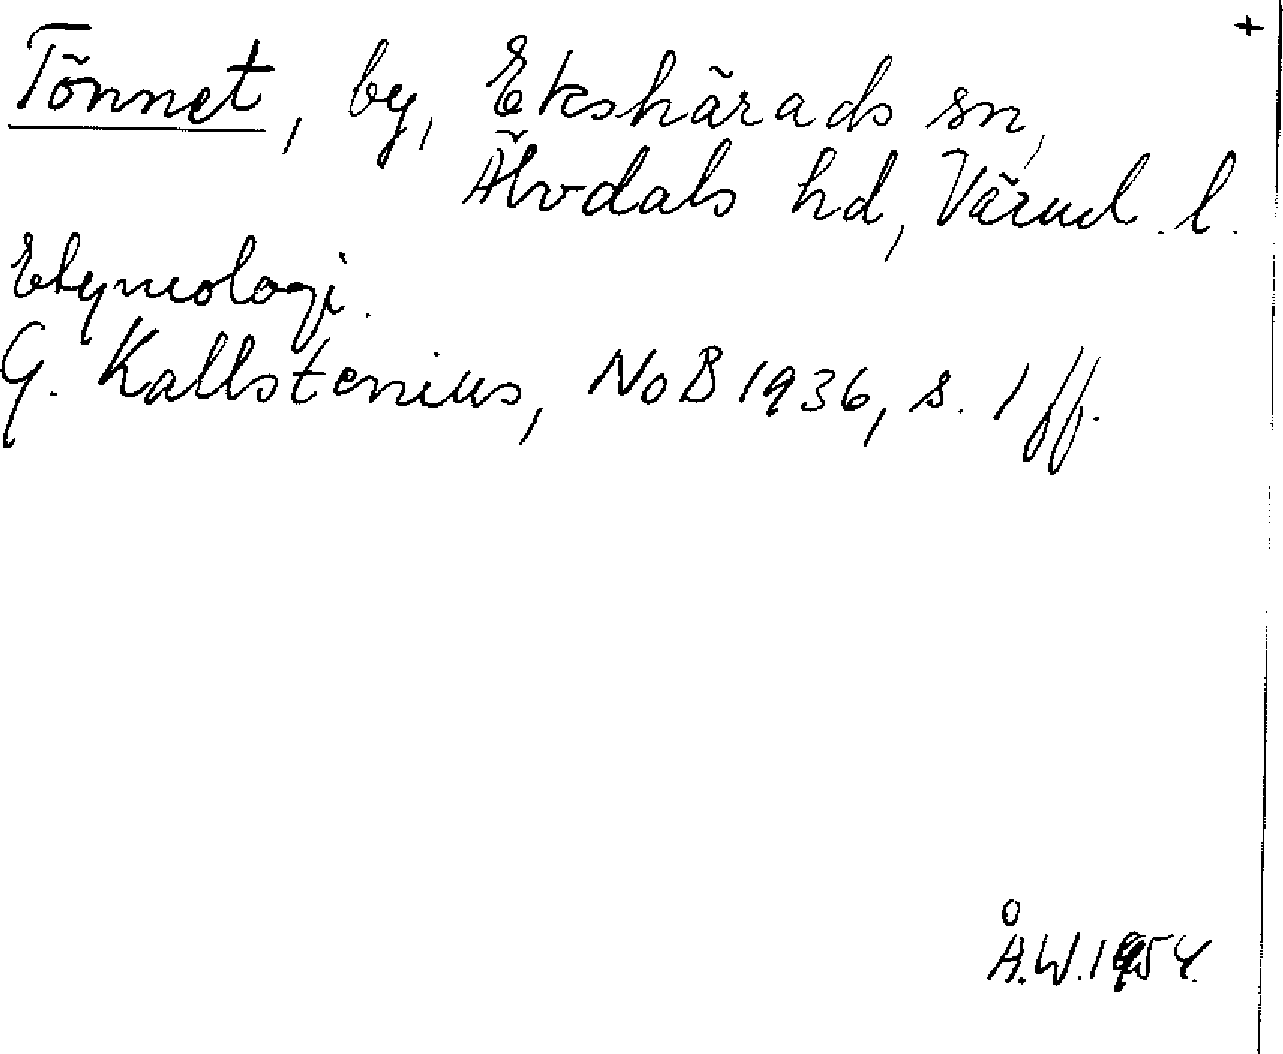 +
Tönnet, by, Ekshärads sn,
Älvdals hd, Värml. l.
Etymologi.
G. Kallstenius, NoB 1936, s. 1 ff.
Å.W. 1954.